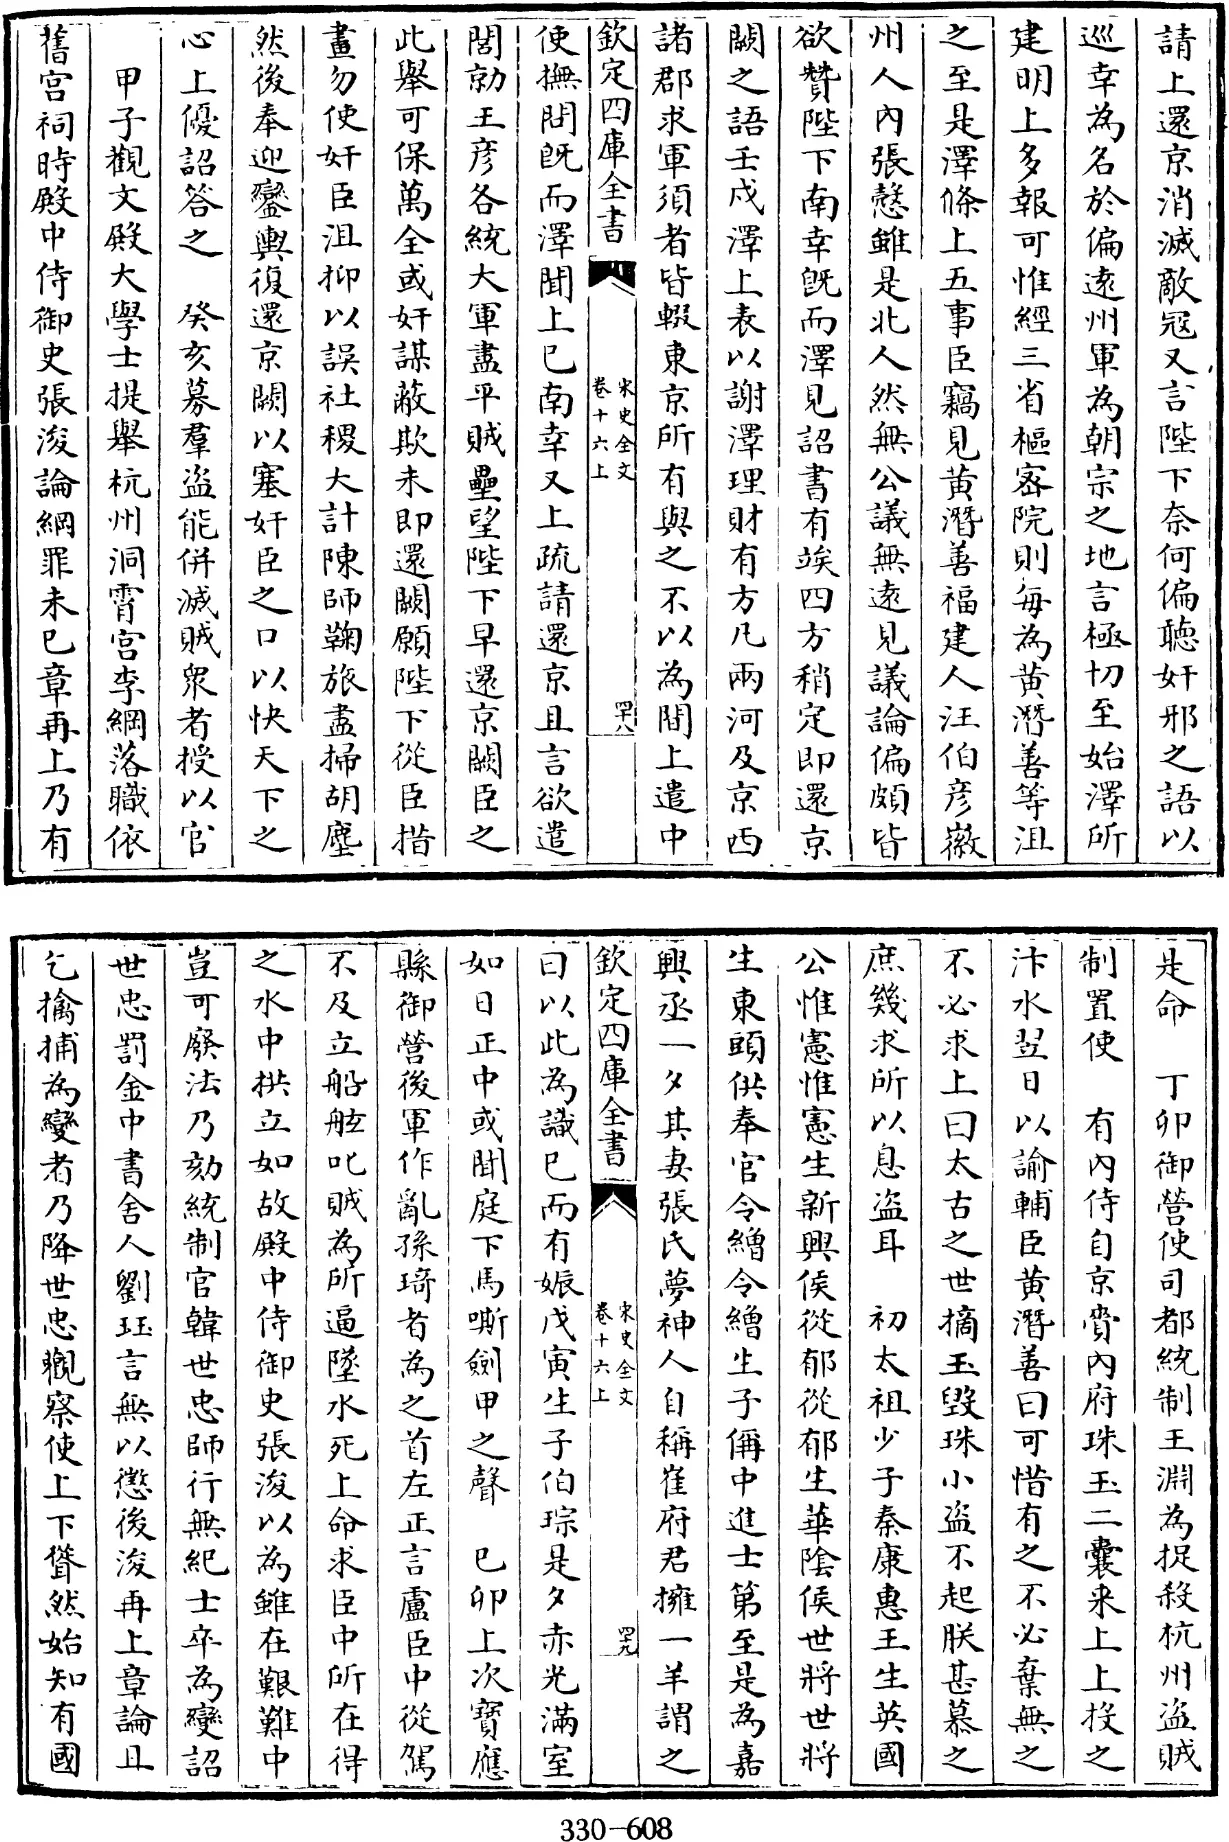 請上還京消滅敵冦又言陛下奈何偏聽奸邪之語以
巡幸為名於偏逺州軍為朝宗之地言極切至始澤所
建明上多報可惟經三省樞密院則毎為黃潛善等沮
之至是澤條上五事臣竊見黃潛善福建人汪伯彦徽
州人內張慤雖是北人然無公議無逺見議論偏頗皆
欲贊陛下南幸旣而澤見詔書有竢四方稍定即還京
闕之語壬戌澤上表以謝澤理財有方凡兩河及京西
諸郡求軍須者皆輟東京所有與之不以為間上遣中
欽定四庫全書
宋史全文
卷十六上
四十八
使撫問旣而澤聞上已南幸又上疏請還京且言欲遣
閭勍王彦各統大軍盡平賊壘望陛下早還京闕臣之
此舉可保萬全或奸謀蔽欺未即還闕願陛下從臣措
畫勿使奸臣沮抑以誤社稷大計陳師鞠旅盡掃胡塵
然後奉迎鑾輿復還京闕以塞奸臣之口以快天下之
心上優詔答之　癸亥募羣盜能併滅賊衆者授以官
甲子觀文殿大學士提舉杭州洞霄宮李綱落職依
舊宮祠時殿中侍御史張浚論綱罪未已章再上乃有
是命　丁卯御營使司都統制王淵為捉殺杭州盜賊
制置使　有內侍自京賫內府珠玉二囊來上上投之
汴水翌日以諭輔臣黃潛善曰可惜有之不必棄無之
不必求上曰太古之世摘玉毀珠小盜不起朕甚慕之
庶幾求所以息盜耳　初太祖少子秦康惠王生英國
公惟憲惟憲生新興侯從郁從郁生華陰侯世將世將
生東頭供奉官令繒令繒生子偁中進士第至是為嘉
興丞一夕其妻張氏夢神人自稱崔府君擁一羊謂之
欽定四庫全書
宋史全文
卷十六上
四十九
曰以此為識已而有娠戊寅生子伯琮是夕赤光滿室
如日正中或聞庭下馬嘶劍甲之聲　己卯上次寶應
縣御營後軍作亂孫琦者為之首左正言盧臣中從駕
不及立船舷叱賊為所逼墜水死上命求臣中所在得
之水中拱立如故殿中侍御史張浚以為雖在艱難中
豈可廢法乃劾統制官韓世忠師行無紀士卒為變詔
世忠罰金中書舍人劉珏言無以懲後浚再上章論且
乞擒捕為變者乃降世忠觀察使上下聳然始知有國
330-608